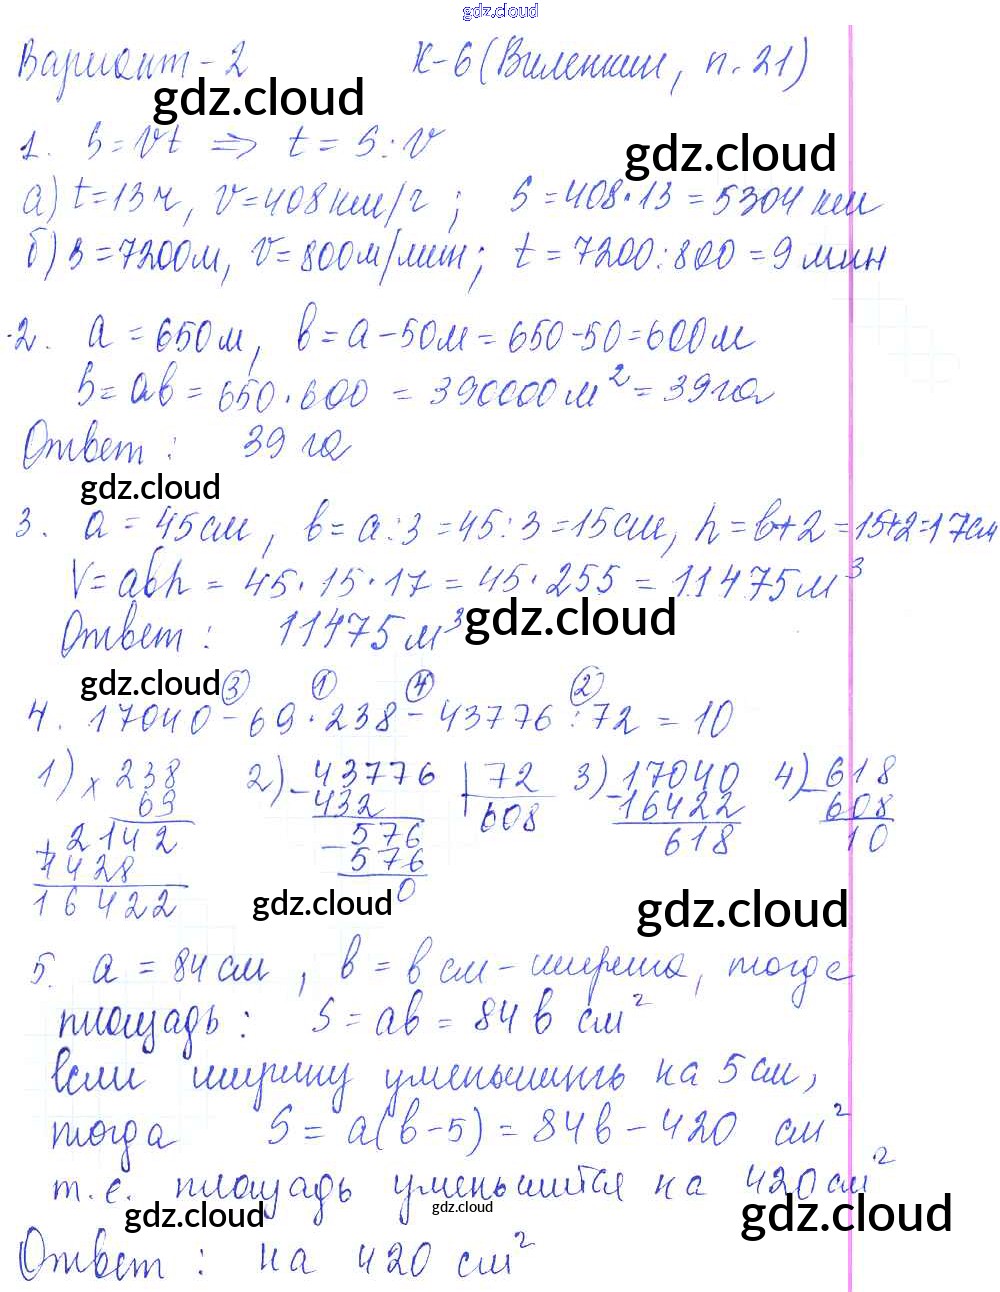 gdz.cloud
Вариант-2 К-6 (Виленкин, п. 21)
gdz.cloud
1. S=Vt ⇒ t = S:V
gdz.cloud
а) t=13ч, V=408км/ч; S=408·13=5304 км
б) S=7200м, V=800м/мин; t=7200:800=9мин
2. a=650м, b=a-50м=650-50=600м
S=ab=650·600=390000м²=39га
Ответ: 39 га
gdz.cloud
3. a=45см, b=a:3=45:3=15см, h=b+2=15+2=17см
V=abh=45·15·17=45·255=11475м³
Ответ: 11475м³
gdz.cloud
gdz.cloud
③ ① ④ ②
4. 17040-69·238-43776:72=10
1) × 238 2) - 43776 | 72 3) - 17040 4) - 618
69 432 608 16422 608
+ 2142 - 576 618 10
1428 576
16422 0
gdz.cloud
gdz.cloud
5. a=84см, b=b см-ширина, тогда
площадь: S=ab=84b см²
если ширину уменьшить на 5см,
тогда S=a(b-5)=84b-420 см²
т.е. площадь уменьшится на 420см²
gdz.cloud
gdz.cloud
gdz.cloud
Ответ: на 420 см²